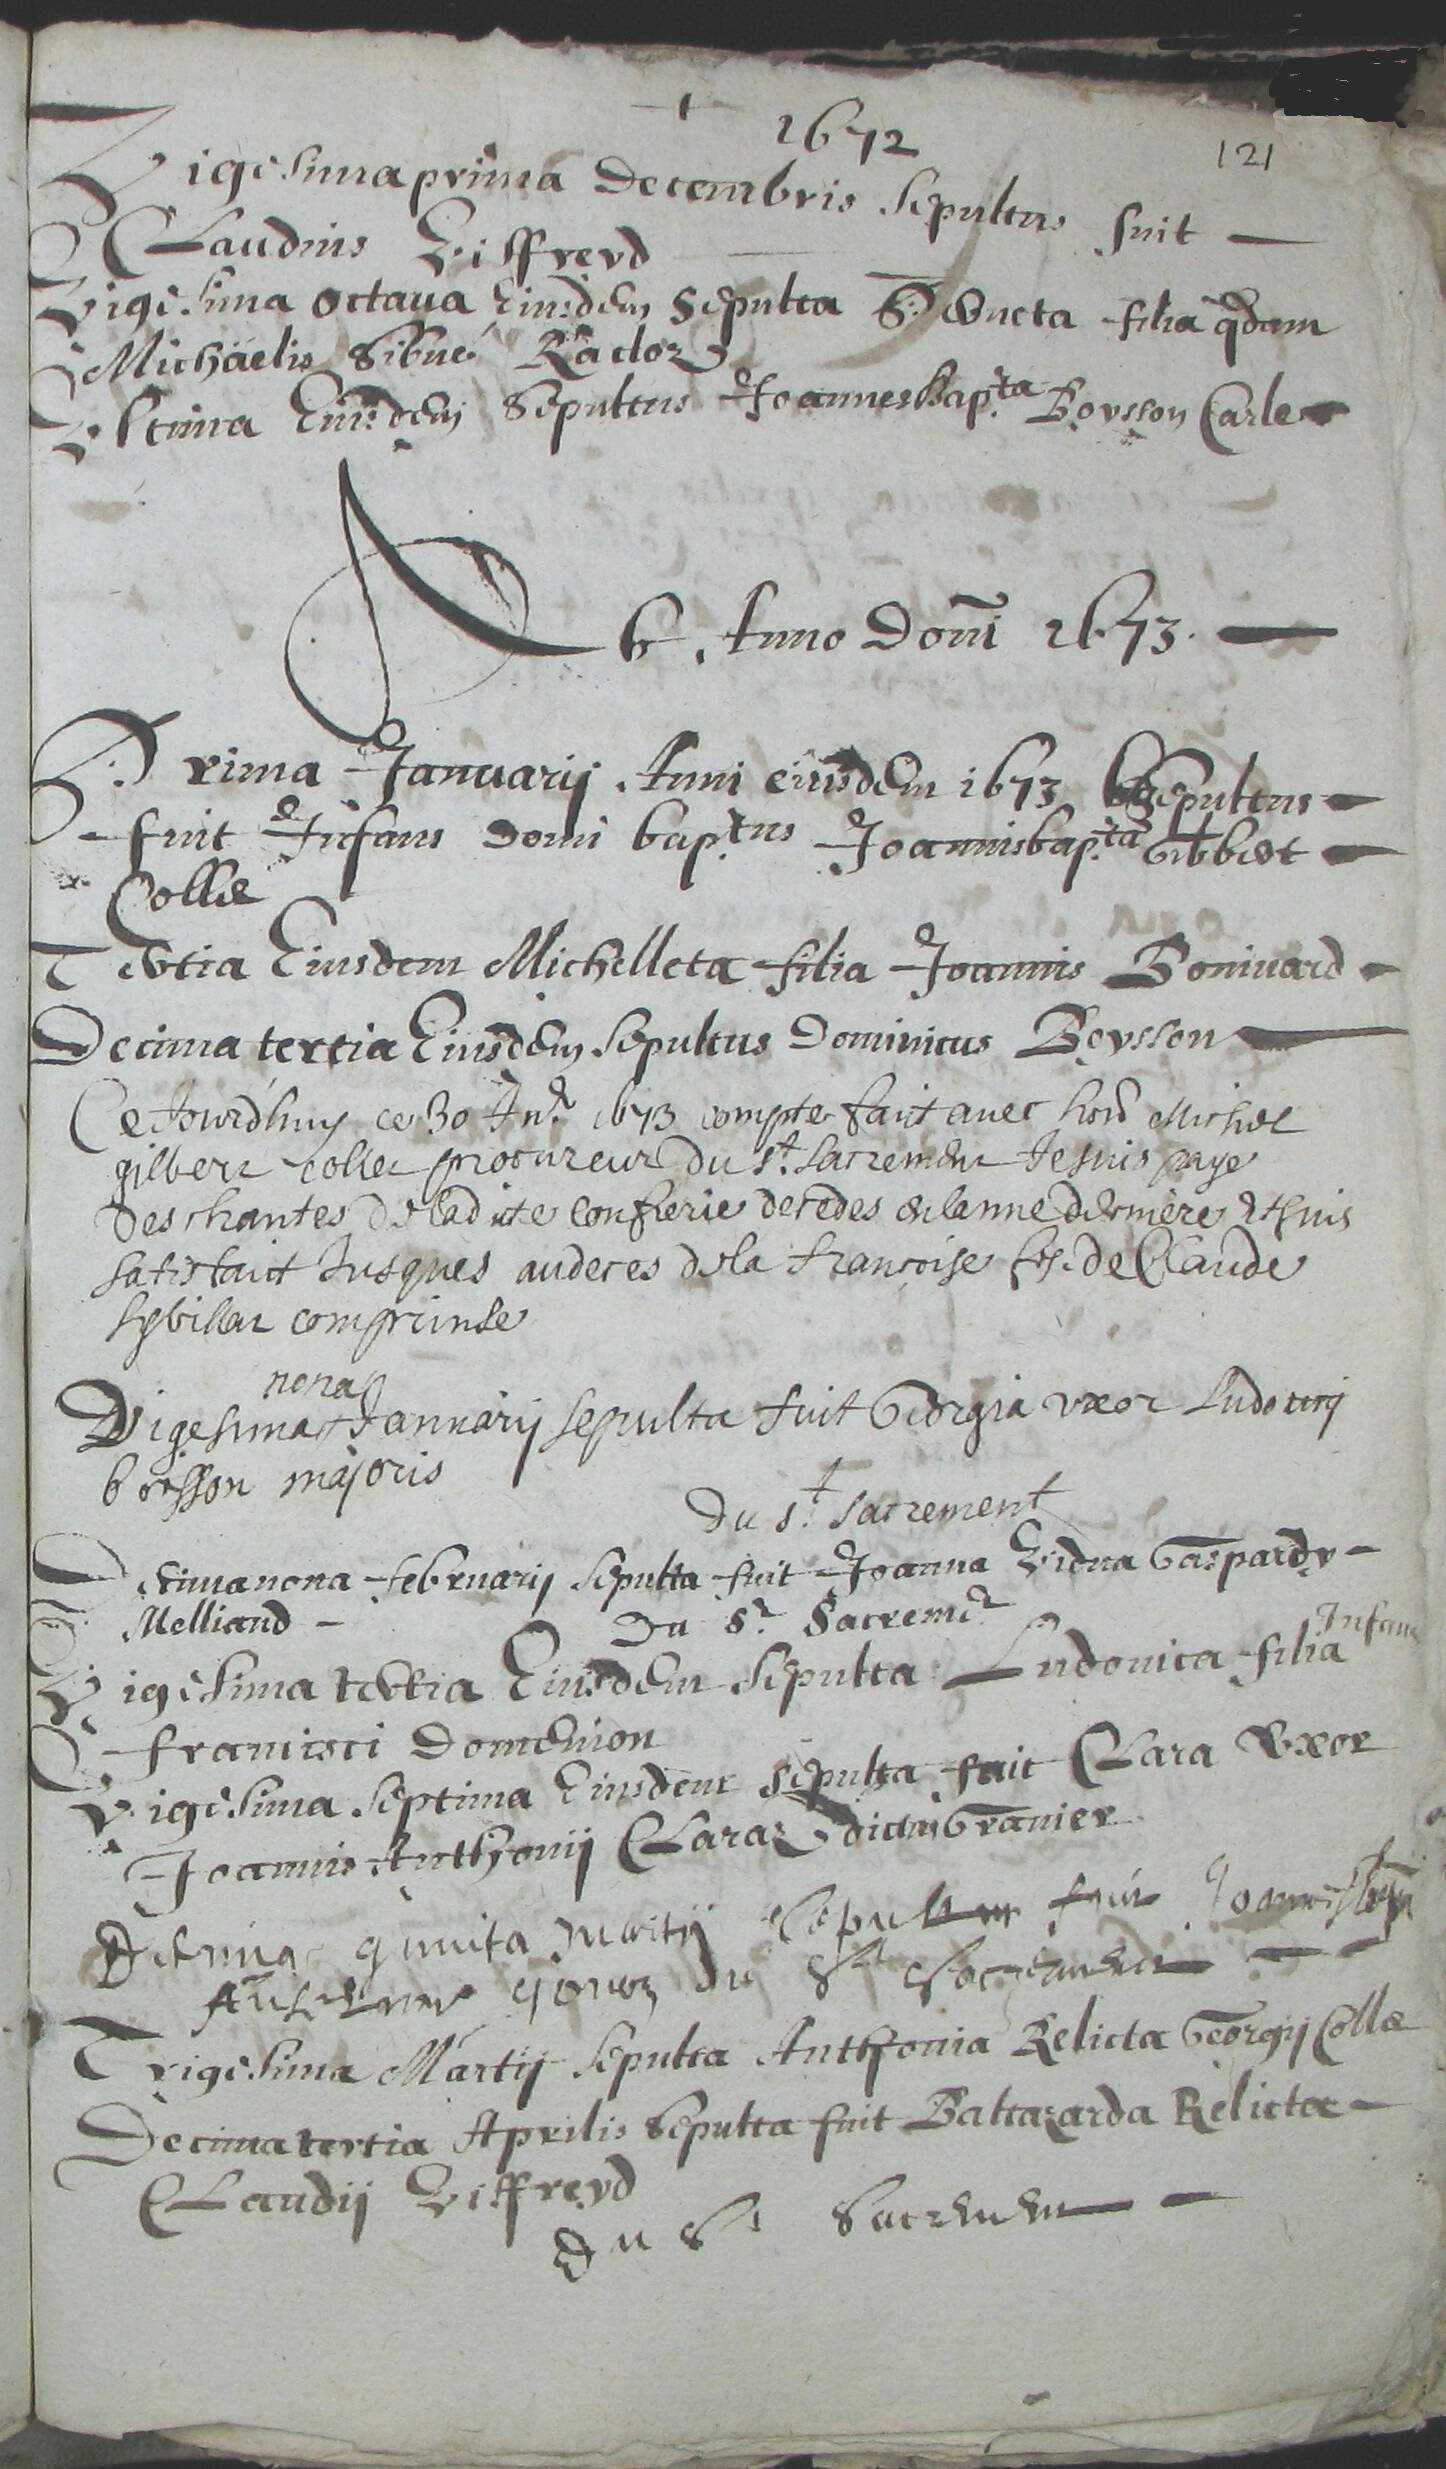 1672
121
Vigesima prima Decembris sepultus fuit
Claudius Viffreyd
Vigesima octaua Eiusdem sepulta filia qdam
Michaelis Sibué
Vltima Eiusdem sepultus Joannes Bapta Boysson Carle
Ab Anno Domi 1673.
Prima Januarij Anni eiusdem 1673 sepultus
fuit Infans domi baptus Joannisbapta Gilbert
Collie
Tertia Eiusdem Michelleta filia Joannis Boniuard
Decima tertia Eiusdem sepultus Dominicus Boysson
Ce Jourdhuy ce 30 Jnr 1673 compte fait auec hon Michel
gilbert collie procureur du st sacrement Je suis paye
des chantes de ladite confrerie decedes en lanne derniere & suis
satisfait Jusques au deces de la françoise fe de Claude
comprinse
nona
Vigesima Januarij sepulta fuit Georgia vxor Ludouicj
boisson majoris
du st sacrement
Decima nona februarij sepulta fuit Joanna Vidua Gaspardy
Melliand
Du St Sacremt
Vigesima tertia Eiusdem sepulta Ludouica filia Infans
francisci Domenion
Vigesima septima Eiusdem sepulta fuit Clara Vxor
Joannis Anthonij Claraz dictus Granier
Decima quinta Martij sepultus fuit
du St Sacrement
Trigesima Martij sepulta Anthonia Relicta Georgij Collie
Decima tertia Aprilis sepulta fuit Baltazarda Relicta
Claudij Viffreyd
du St Sacrement